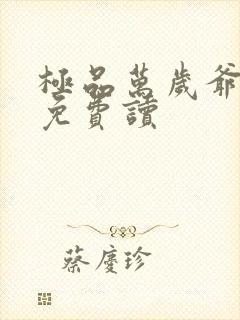 極品萬歲爺
免費讀
蔡慶珍